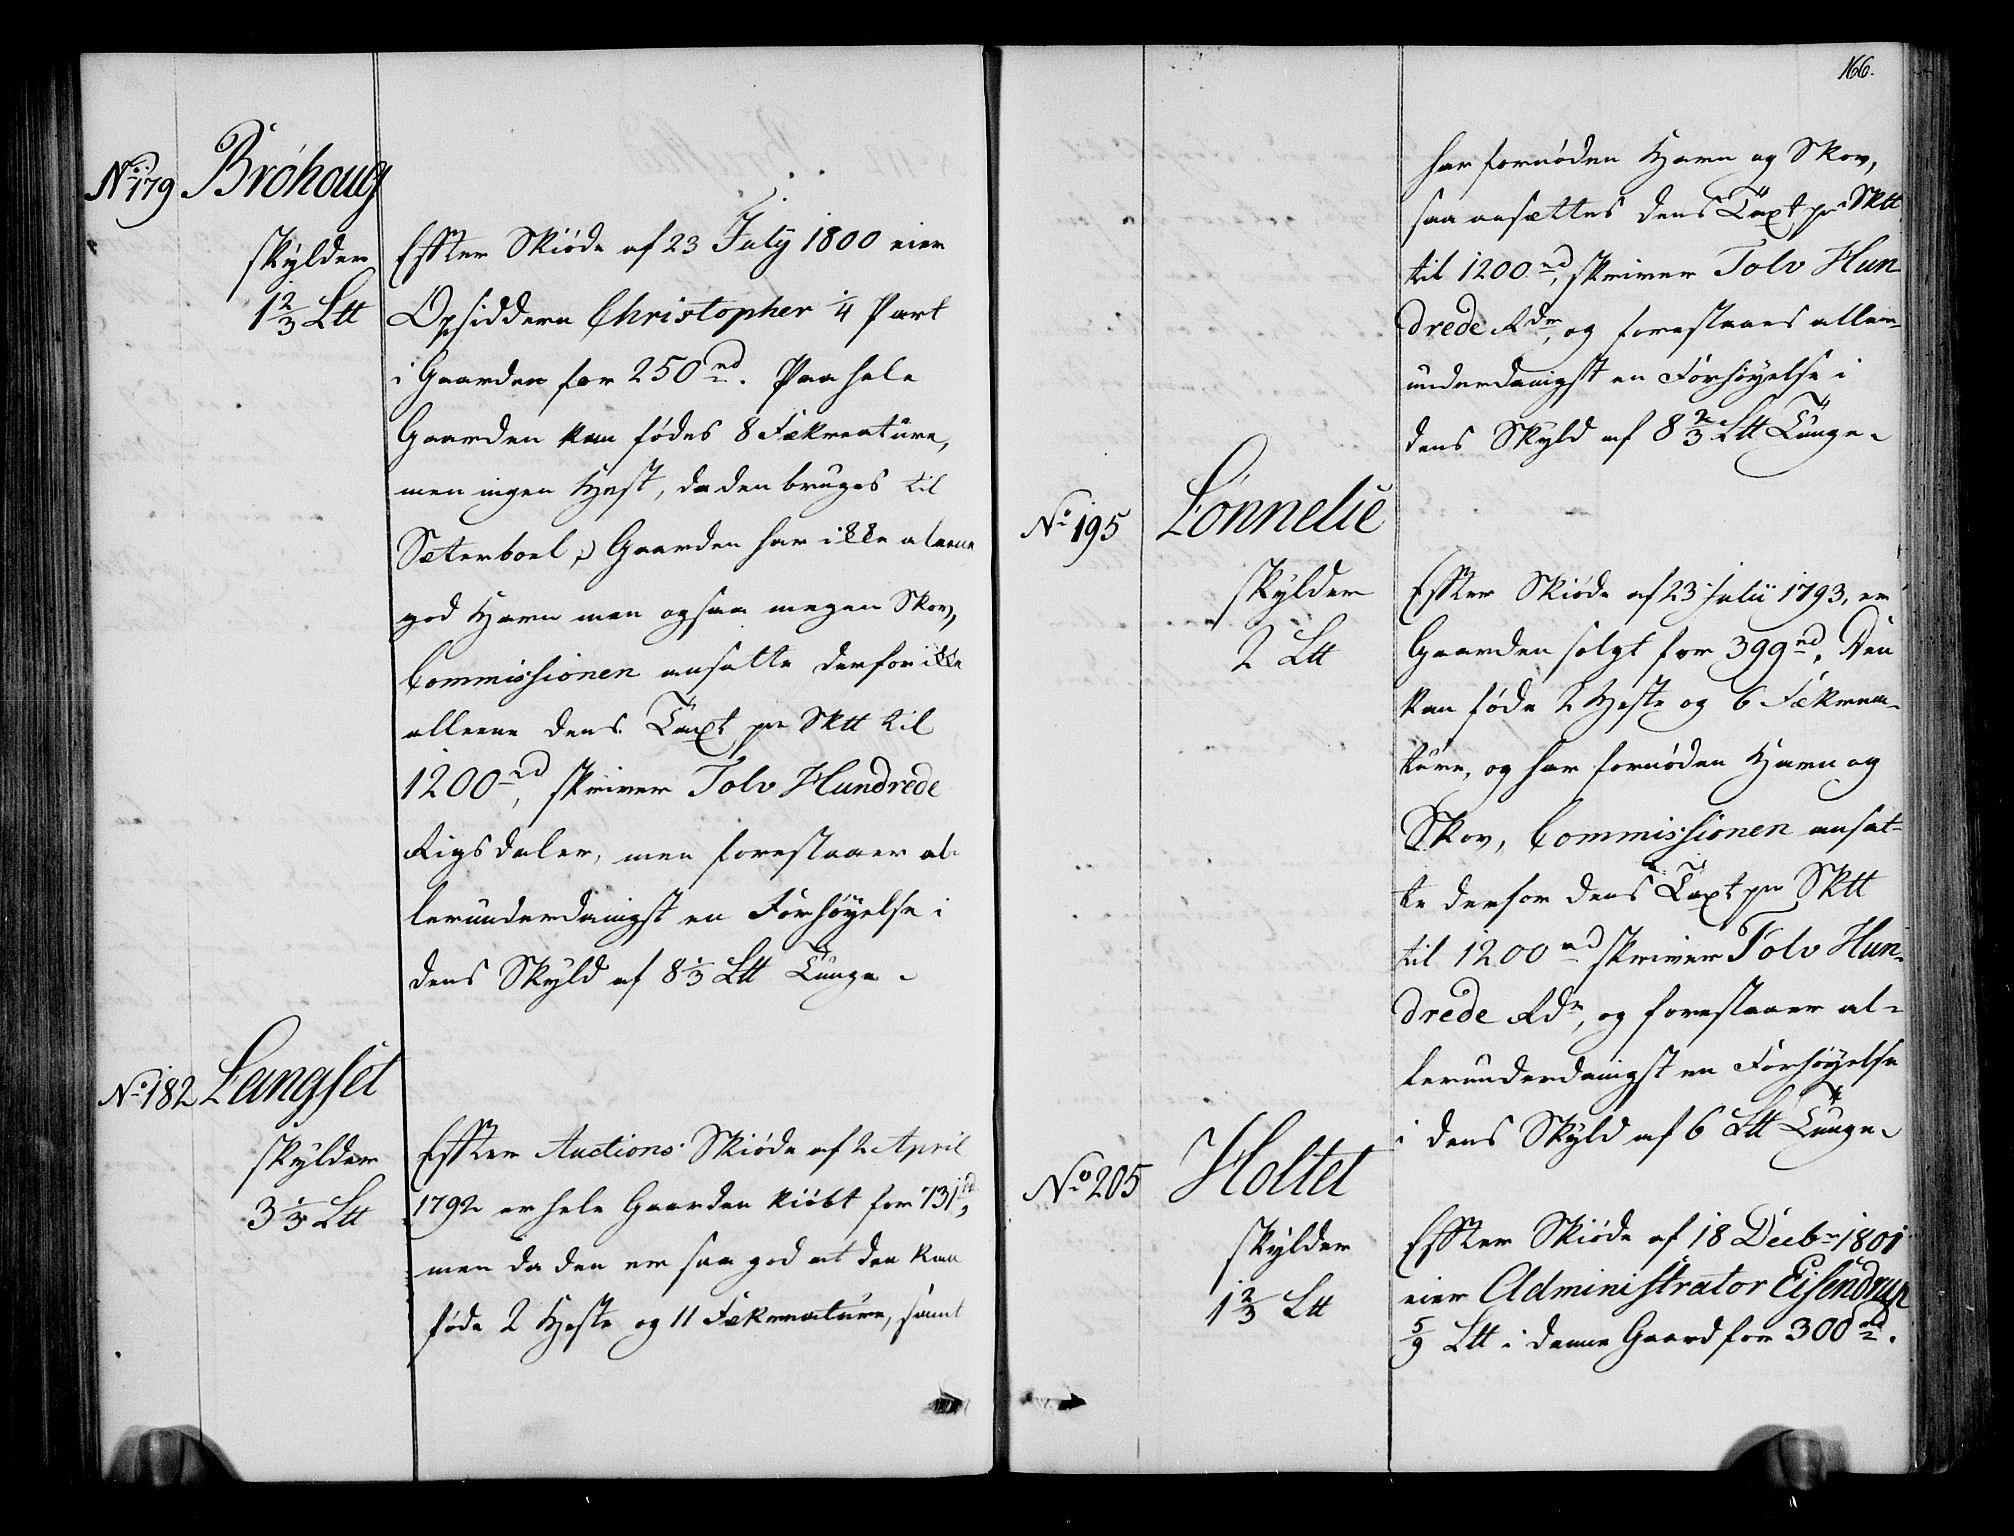 No 179 Bröhoug
skylder
1 2/3 Ltt
Effter Skiöde af 23 July 1800 eier
Opsidderen Christopher 1/4 Part
i Gaarden for 250 rd. Paa hele
Gaarden kan fødes 8 Fækreature,
men ingen Hest, da den bruges til
Sæterboel; Gaarden har ikke aleene
god Havn men ogsaa megen Skov,
Commissionen ansatte derfor ikke
alleene dens Taxt pr Sktt til
1200 rd, skriver Tolv Hundrede
Rigsdaler, men forestaaer al-
lerunderdanigst en Forhöyelse i
dens Skyld af 8 1/3 Ltt Tunge.
No 182 Langset
skylder
3 1/3 Ltt
Effter Auctions Skiöde af 2 April
1792 er hele Gaarden kiöbt for 731 rd,
men da den er saa god at den kan
føde 2 Heste og 11 Fækreature, samt
166.
har fornøden Havn og Skov,
saa ansættes dens Taxt pr Sktt
til 1200 rd, skriver Tolv Hun-
drede Rdr, og forestaaes aller-
underdanigst en Forhöyelse i
dens Skyld af 8 2/3 Ltt Tunge.
No 195 Lönnelie
skylder
2 Ltt
Effter Skiöde af 23 Julii 1793, er
Gaarden solgt for 399 rd. Den
kan føde 2 Heste og 6 Fækrea-
ture, og har fornøden Havn og
Skov, Commissionen ansat-
te derfor dens Taxt pr Sktt
til 1200 rd skriver Tolv Hun-
drede Rdr, og forestaaer al-
lerunderdanigst en Forhöyelse
i dens Skyld af 6 Ltt Tunge.
No 205 Holtet
skylder
1 2/3 Ltt
Effter Skiöde af 18 Decbr 1801
eier Administrator Eisendrup
5/9 Ltt i denne Gaard for 300 rd.